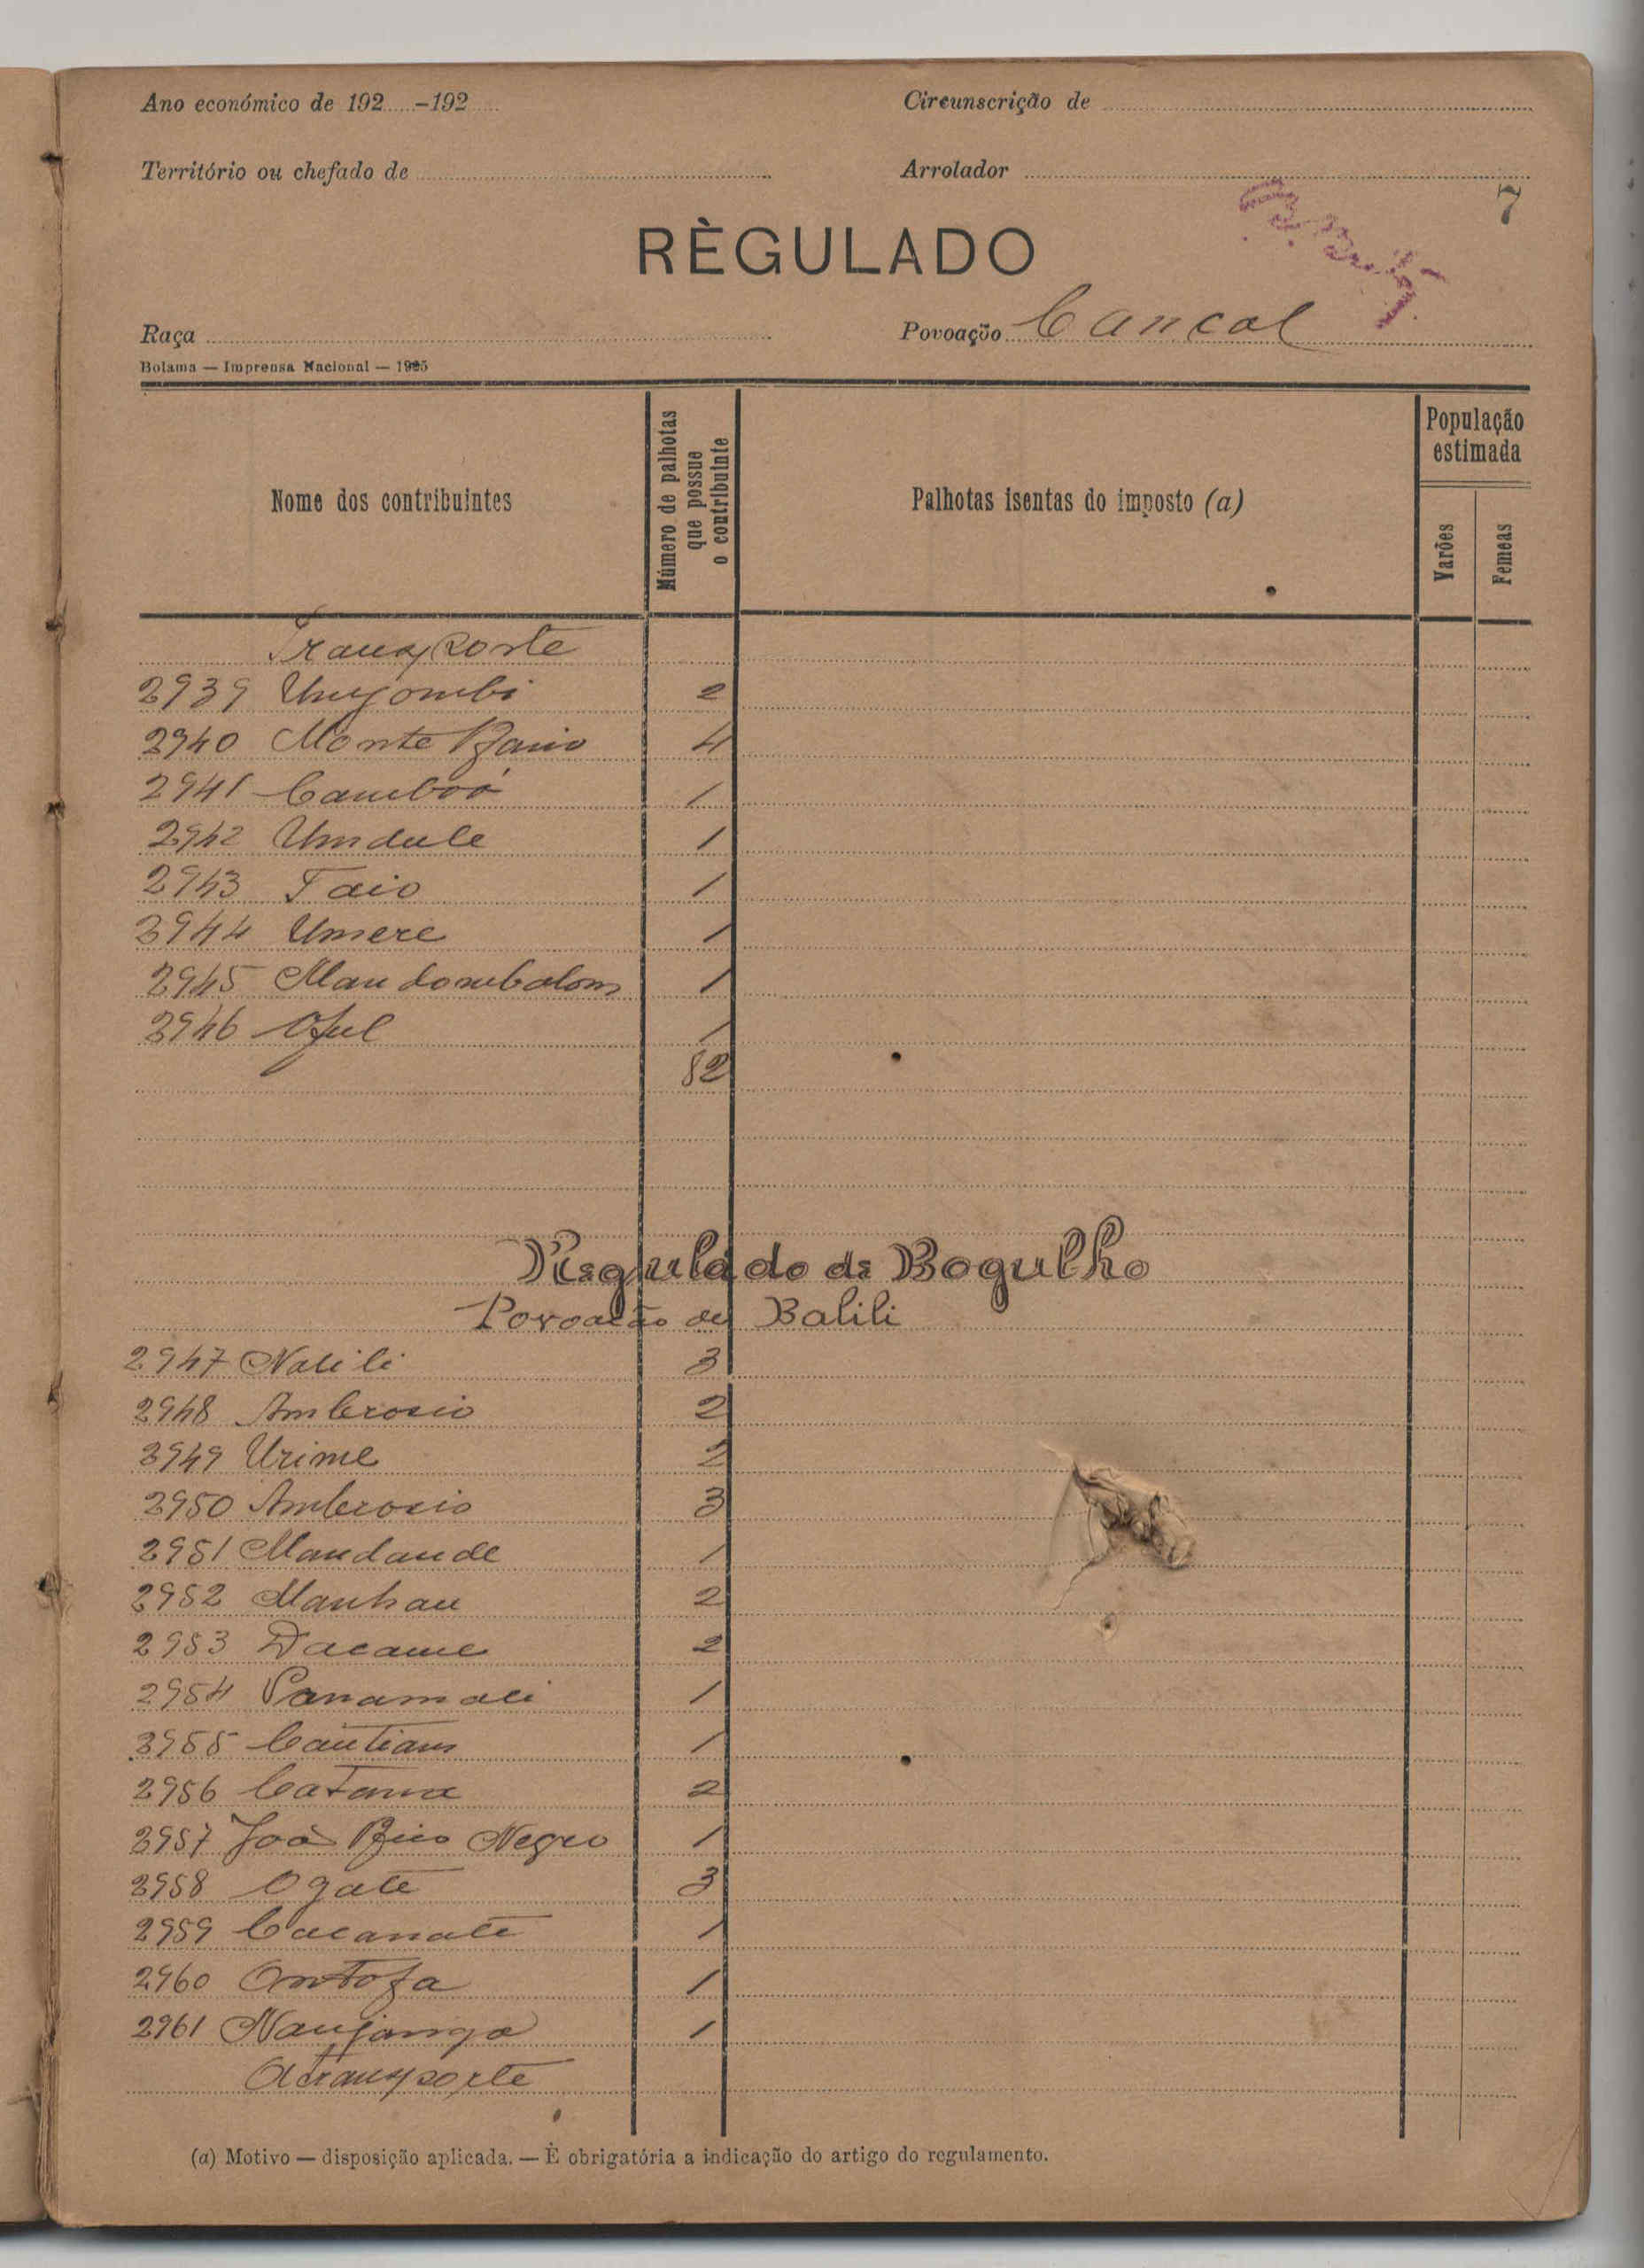 Ano económico de 192.....-192.....
Circunscrição de
Território ou chefado de
Arrolador
7
RÈGULADO
Raça
Povoação Cancal
Bolama — Imprensa Nacional — 1925
Nome dos contribuintes
Número de palhotas que possue o contribuinte
Palhotas isentas do imposto (a)
População estimada
Varões
Femeas
Transporte
2939 Ungombi 2
2940 Monte Baio 4
2941 Camboó 1
2942 Umdule 1
2943 Taio 1
2944 Umere 1
2945 Mandombolom 1
2946 Oful 1
82
Regulado de Bogulho
Povoação de Balili
2947 Nalili 3
2948 Ambrosio 2
2949 Urime 2
2950 Ambrosio 3
2951 Mandande 1
2952 Manhau 2
2953 Dacame 2
2954 Panamali 1
2955 Cautiam 1
2956 Catama 2
2957 Joã Bico Negro 1
2958 Ogate 3
2959 Cacanate 1
2960 Ontofa 1
2961 Naujanga 1
A transporte
(a) Motivo — disposição aplicada. — È obrigatória a indicação do artigo do regulamento.